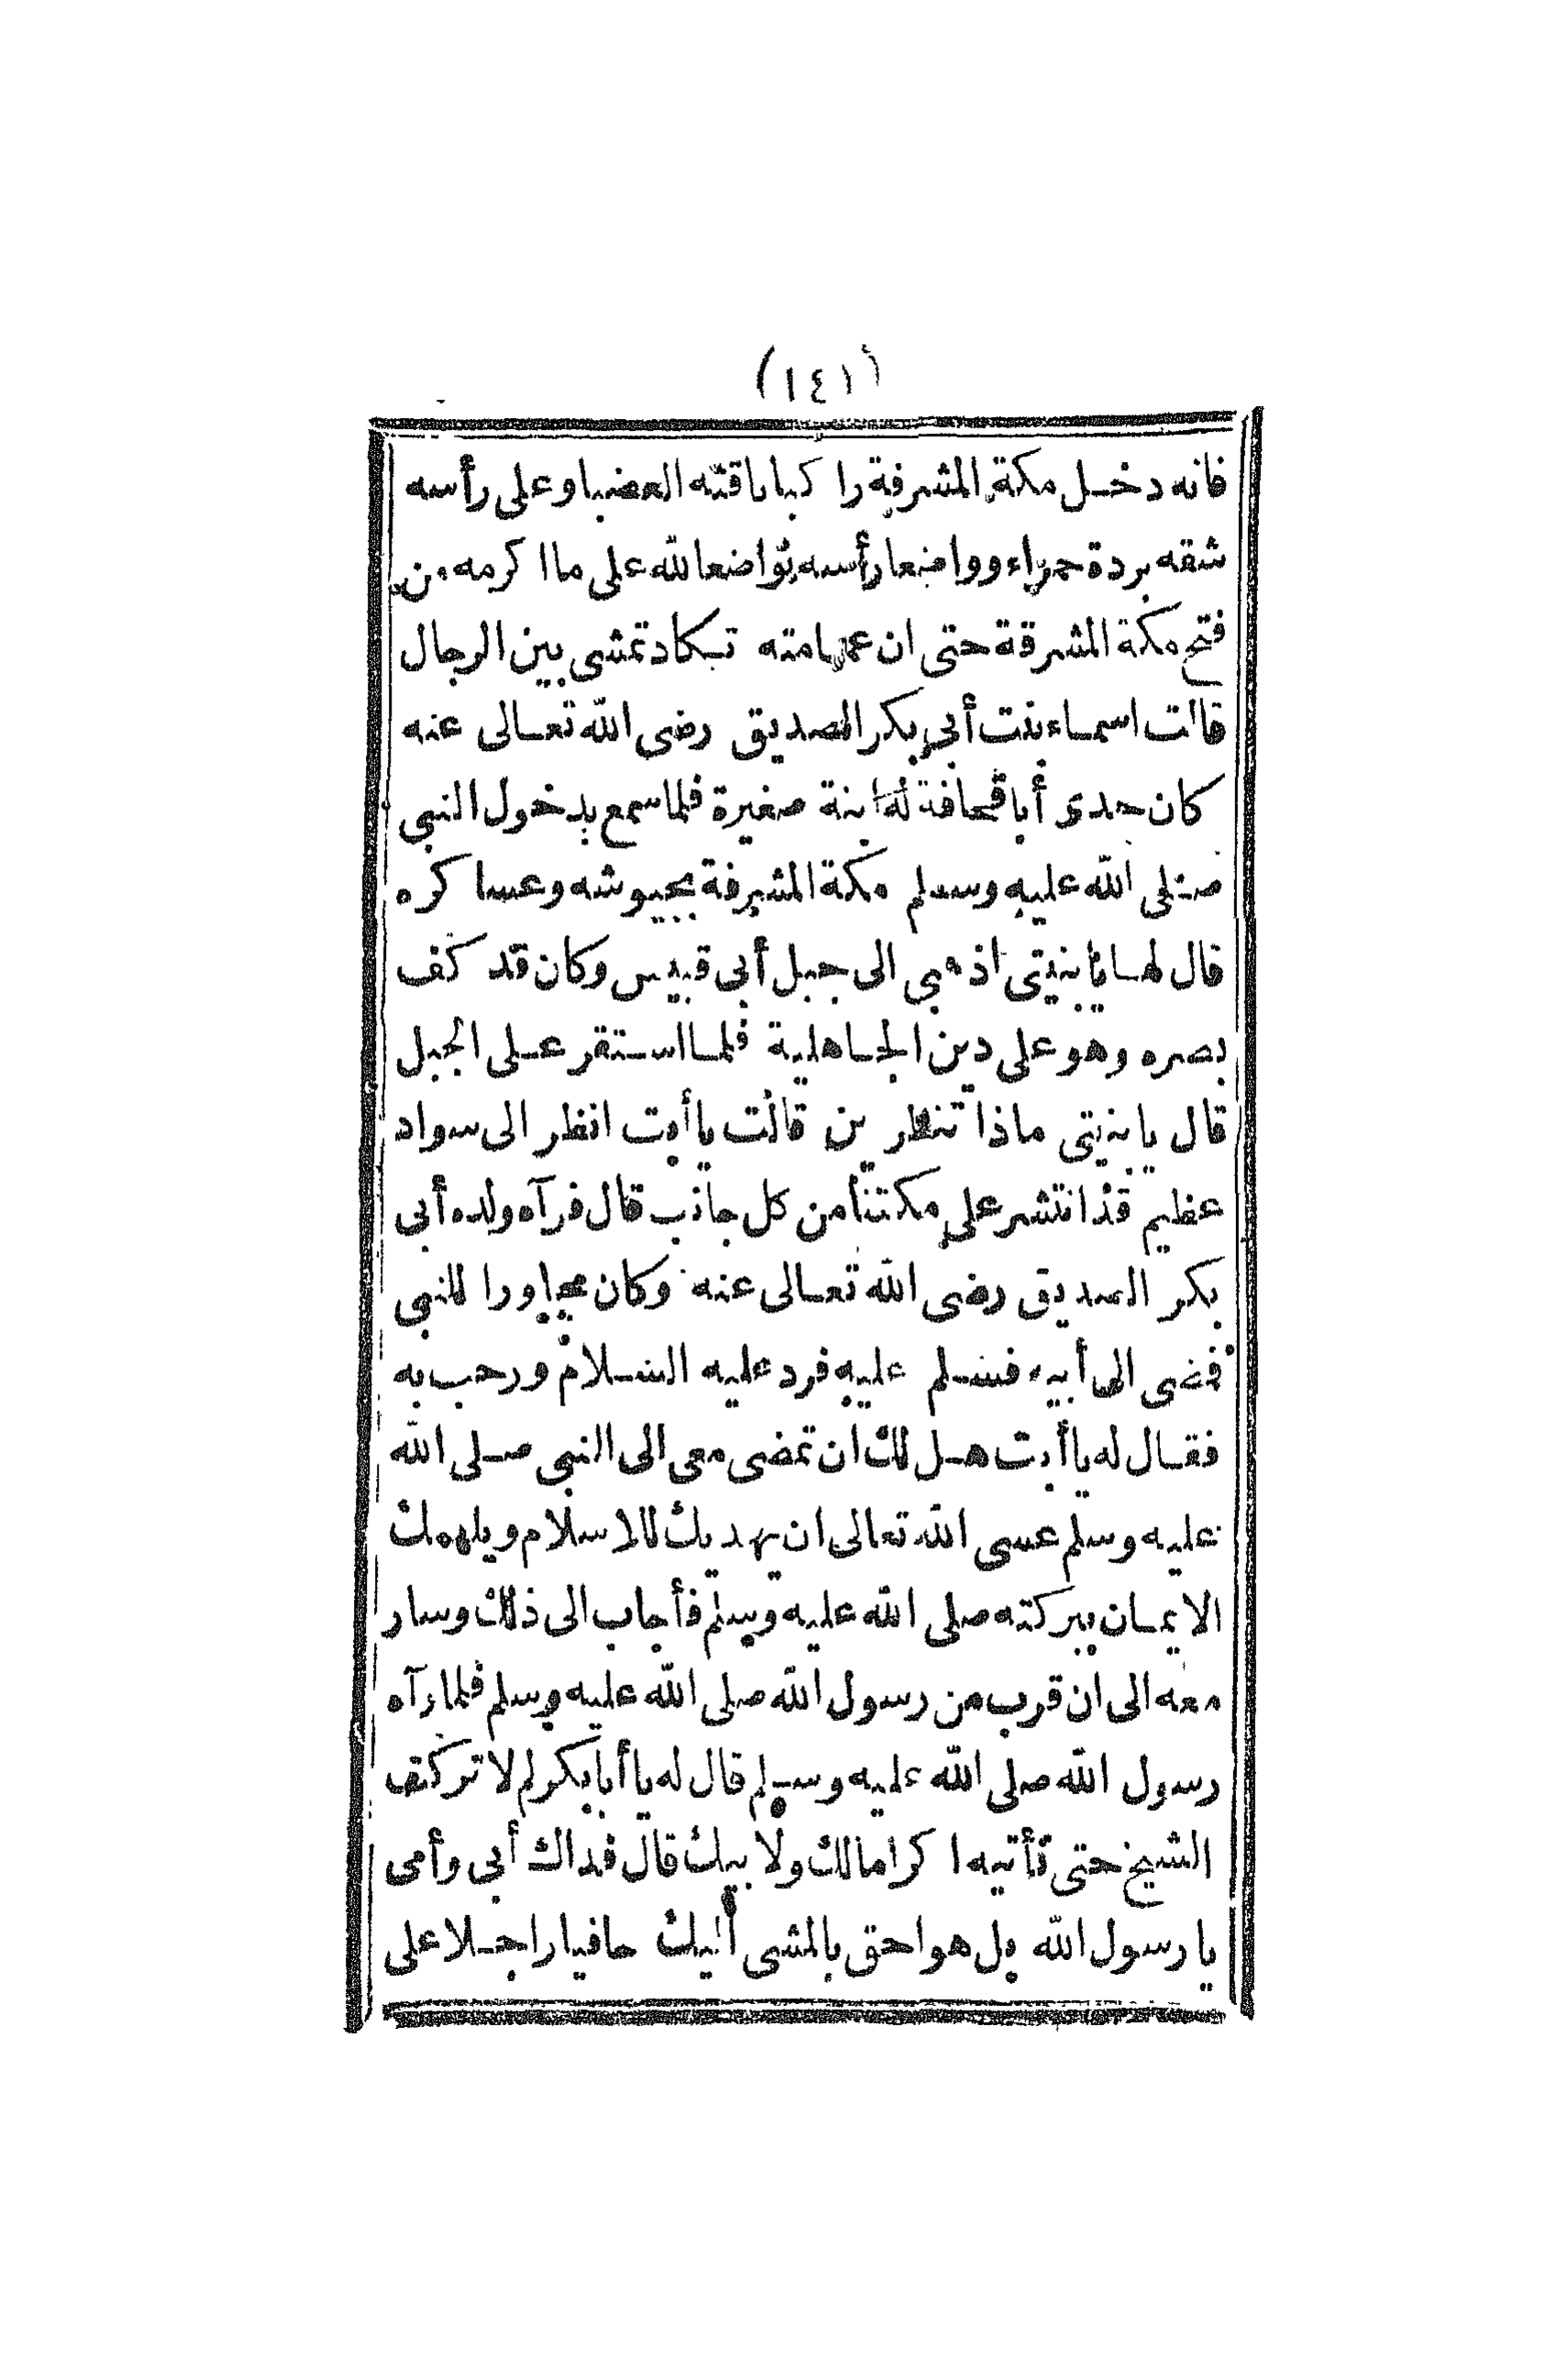 (١٤١)
فانه دخل مكة المشرفة راكبا ناقته العضبا وعلى رأسه
شقه بردة حمراء وواضعا رأسه تواضعا لله على ما اكرمه من
فتح مكة المشرفة حتى ان عمامته تكاد تمشى بين الرجال
قالت اسماء بنت أبى بكر الصديق رضى الله تعالى عنه
كان جدى أبا قحافة له ابنة صغيرة فلما سمع بدخول النبى
صلى الله عليه وسلم مكة المشرفة بجيوشه وعساكره
قال لها يا بنيتى اذهبى الى جبل أبى قبيس وكان قد كف
بصره وهو على دين الجاهلية فلما استقر على الجبل
قال يا بنيتى ماذا تنظرين قالت يا أبت انظر الى سواد
عظيم قد انتشر على مكتنا من كل جانب قال فرآه ولده أبى
بكر الصديق رضى الله تعالى عنه وكان مجاورا للنبى
فمضى الى أبيه فسلم عليه فرد عليه السلام ورحب به
فقال له يا أبت هل لك ان تمضى معى الى النبى صلى الله
عليه وسلم عسى الله تعالى ان يهديك للاسلام ويلهمك
الايمان ببركته صلى الله عليه وسلم فأجاب الى ذلك وسار
معه الى ان قرب من رسول الله صلى الله عليه وسلم فلما رآه
رسول الله صلى الله عليه وسلم قال له يا أبا بكر لم لا تركتف
الشيخ حتى تأتيه اكراما لك ولا بيك قال فداك أبى وأمى
يا رسول الله بل هو احق بالمشى أليك حافيا راجلا على